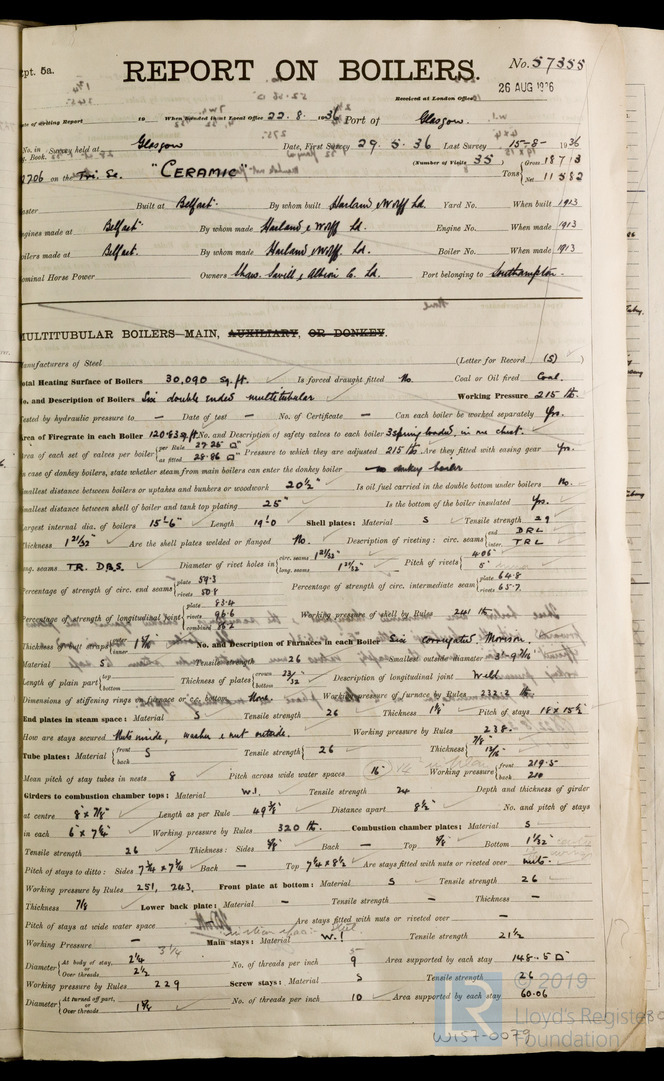 Rpt. 5a.
REPORT ON BOILERS.
No. 57355
26 AUG 1936
Received at London Office
Date of writing Report 19 When handed in at Local Office 22.8.1936 Port of Glasgow.
No. in Survey held at Glasgow Date, First Survey 29.5.36 Last Survey 15-8-1936
Reg. Book. (Number of Visits 35)
2706 on the Tri. Sc. "CERAMIC" Tons Gross 18713
Net 11582
Master Built at Belfast. By whom built Harland & Wolff Ld. Yard No. When built 1913
Engines made at Belfast. By whom made Harland & Wolff Ld. Engine No. When made 1913
Boilers made at Belfast. By whom made Harland & Wolff Ld. Boiler No. When made 1913
Nominal Horse Power Owners Shaw, Savill & Albion C. Ld. Port belonging to Southampton.
MULTITUBULAR BOILERS—MAIN, AUXILIARY, OR DONKEY.
Manufacturers of Steel (Letter for Record (S) )
Total Heating Surface of Boilers 30,090 sq.ft. Is forced draught fitted No. Coal or Oil fired Coal.
No. and Description of Boilers Six double ended multitubular Working Pressure 215 lb.
Tested by hydraulic pressure to — Date of test — No. of Certificate — Can each boiler be worked separately Yes.
Area of Firegrate in each Boiler 120.83 sq.ft. No. and Description of safety valves to each boiler 3 spring loaded, in one chest.
Area of each set of valves per boiler per Rule 27.25 □" as fitted 28.86 □" Pressure to which they are adjusted 215 lb. Are they fitted with easing gear Yes.
In case of donkey boilers, state whether steam from main boilers can enter the donkey boiler no donkey boiler
Smallest distance between boilers or uptakes and bunkers or woodwork 20½" Is oil fuel carried in the double bottom under boilers No.
Smallest distance between shell of boiler and tank top plating 25" Is the bottom of the boiler insulated Yes.
Largest internal dia. of boilers 15'-6" Length 19'-0 Shell plates: Material S Tensile strength 29
Thickness 1 21/32" Are the shell plates welded or flanged No. Description of riveting: circ. seams end D.R.L. inter. T.R.L.
long. seams T.R. D.B.S. Diameter of rivet holes in circ. seams 1 21/32" long. seams 1 21/32" Pitch of rivets 4.06" 5"
Percentage of strength of circ. end seams plate 59.3 rivets 50.8 Percentage of strength of circ. intermediate seam plate 64.8 rivets 65.7
Percentage of strength of longitudinal joint plate 83.4 rivets 96.6 combined 86.2 Working pressure of shell by Rules 241 lb
Thickness of butt straps outer inner 1 7/16 No. and Description of Furnaces in each Boiler Six corrugated Morison.
Material S Tensile strength 26 Smallest outside diameter 3'-9 7/16"
Length of plain part top bottom Thickness of plates crown bottom 23/32 Description of longitudinal joint Weld.
Dimensions of stiffening rings on furnace or c.c. bottom None. Working pressure of furnace by Rules 232.2 lb
End plates in steam space: Material S Tensile strength 26 Thickness 1⅛ Pitch of stays 18 x 15½
How are stays secured Nuts inside, washer & nut outside. Working pressure by Rules 238.
Tube plates: Material front back S Tensile strength 26 Thickness 7/8" 13/16"
Mean pitch of stay tubes in nests 8 Pitch across wide water spaces 16" Working pressure front 219.5 back 210
Girders to combustion chamber tops: Material W.I. Tensile strength 24 Depth and thickness of girder
at centre 8" x 7/8" Length as per Rule 49⅜" Distance apart 8½" No. and pitch of stays
in each 6" x 7¼" Working pressure by Rules 320 lb. Combustion chamber plates: Material S
Tensile strength 26 Thickness: Sides ⅝" Back — Top ⅝" Bottom 1 1/32
Pitch of stays to ditto: Sides 7¾ x 7¾ Back — Top 7¼ x 8½ Are stays fitted with nuts or riveted over nuts.
Working pressure by Rules 251, 243, Front plate at bottom: Material S Tensile strength 26
Thickness 7/8 Lower back plate: Material — Tensile strength — Thickness —
Pitch of stays at wide water space Are stays fitted with nuts or riveted over —
Working Pressure — Main stays: Material W.I Tensile strength 21½
Diameter At body of stay, 2¼ or Over threads 2½ 3¼ No. of threads per inch 9 Area supported by each stay 148.5 □
Working pressure by Rules 229 Screw stays: Material S Tensile strength 26
Diameter At turned off part, or Over threads 1⅝ No. of threads per inch 10 Area supported by each stay 60.06
© 2019
Lloyd's Register
Foundation
W157-0079